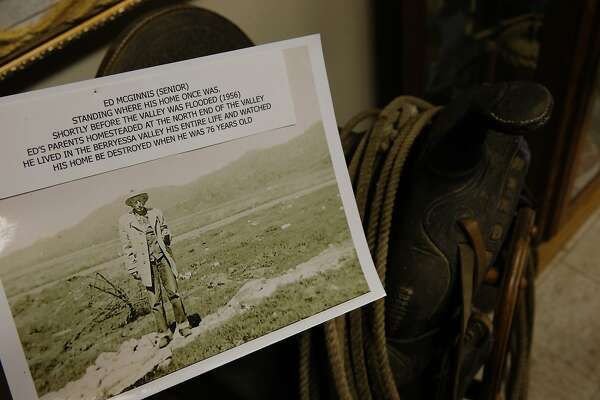 ED MCGINNIS (SENIOR)
STANDING WHERE HIS HOME ONCE WAS,
SHORTLY BEFORE THE VALLEY WAS FLOODED (1956)
ED'S PARENTS HOMESTEADED AT THE NORTH END OF THE VALLEY
HE LIVED IN THE BERRYESSA VALLEY HIS ENTIRE LIFE AND WATCHED
HIS HOME BE DESTROYED WHEN HE WAS 76 YEARS OLD